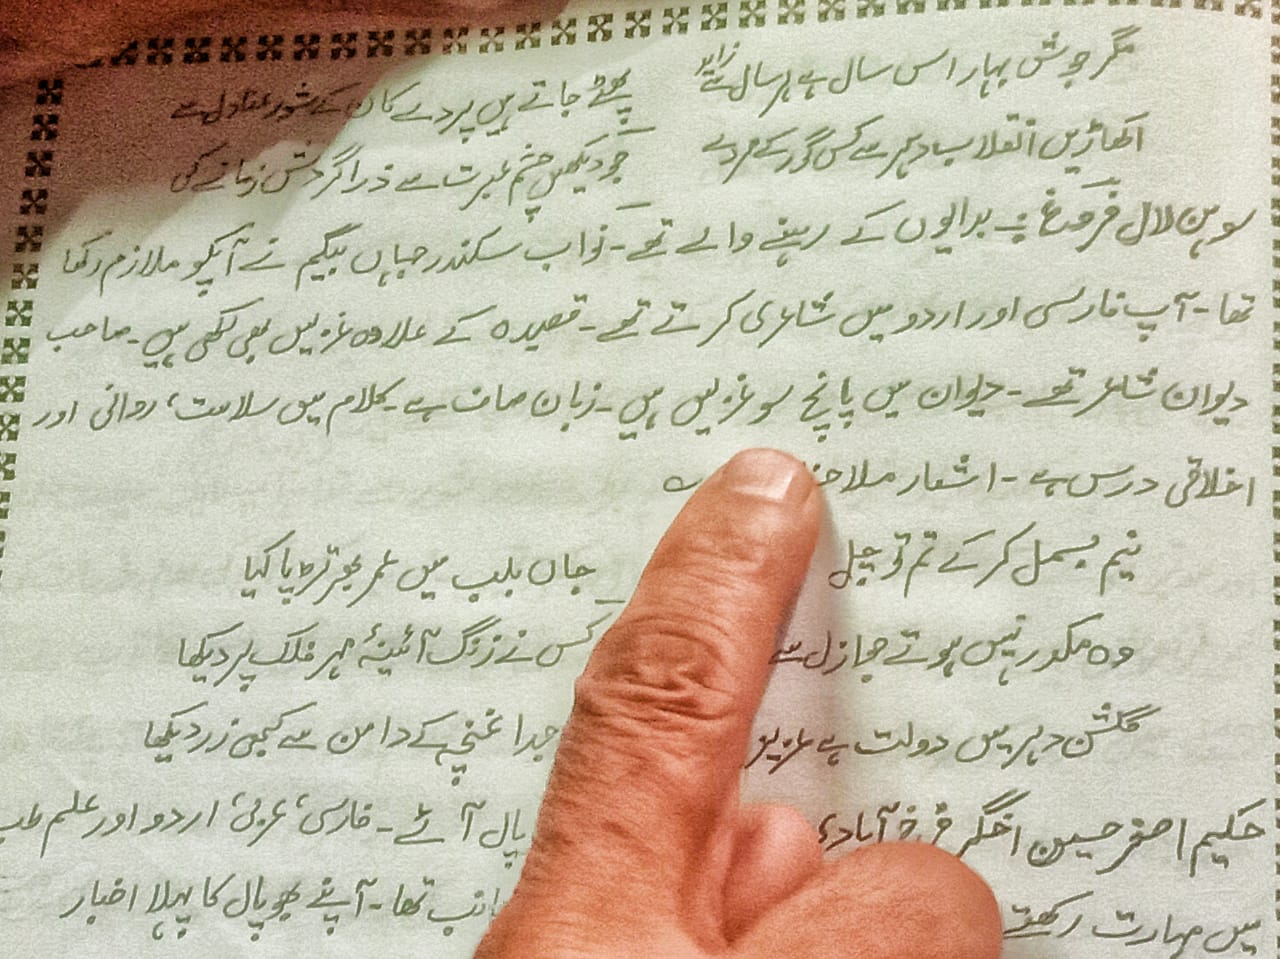 مگر جوش بہار اس سال ہے ہر سال سے زاید پھٹے جاتے ہیں پردے کان کے شور عنادل سے
اکھاڑیں انقلاب دہر سے کس گور کے مردے جو دیکھیں چشم عبرت سے ذرا گردش زمانے کی
سوہن لال فروغؔ بدایوں کے رہنے والے تھے۔ نواب سکندر جہاں بیگم نے آپکو ملازم رکھا
تھا۔ آپ فارسی اور اردو میں شاعری کرتے تھے۔ قصیدہ کے علاوہ غزلیں بھی لکھی ہیں۔ صاحب
دیوان شاعر تھے۔ دیوان میں پانچ سو غزلیں ہیں۔ زبان صاف ہے۔ کلام میں سلاست، روانی اور
اخلاقی درس ہے۔ اشعار
نیم بسمل کرکے تم تو چلے جاں بلب میں عمر بھر تڑپا کیا
وہ مکدر نہیں ہوتے جو ازل سے کس نے زنگ آئینۂ مہر فلک پر دیکھا
گلشن دہر میں دولت ہے عزیز جدا غنچے کے دامن سے کبھی زر دیکھا
حکیم اصغر حسین اخگر فرخ آبادی پال آئے۔ فارسی، عربی، اردو اور علم طب
میں مہارت رکھتے تھا۔ آپنے بھوپال کا پہلا اخبار